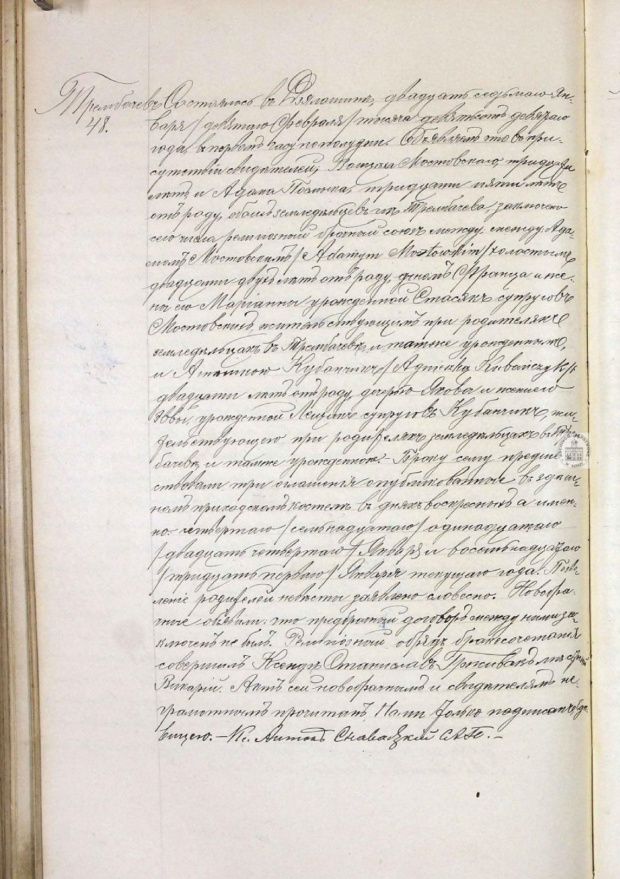 Трембачевъ Состоялось въ Дзялошинѣ, двадцать седьмаго Ян-
48. варя /девятаго Февраля/ тысяча девятьсотъ девятаго
года въ первомъ часу пополудни. Объявляемъ что въ при-
сутствіи свидетелей, Мостовскаго тридцати
лѣтъ и Адама тридцати пяти лѣтъ
отъ роду, обоихъ земледѣльцевъ изъ Трембачева, заключенъ
сего числа религіозный брачный союзъ между между Ада-
момъ Мостовскимъ /Adamym Mostowskim/ холостымъ
двадцати двухъ лѣтъ отъ роду, сыномъ Франца и же-
ны его Маріанны урожденной Стасякъ супруговъ
Мостовскихъ, жительствующимъ при родителяхъ
земледѣльцахъ въ Трембачевѣ, и тамже урожденнымъ,
и
двадцати лѣтъ отъ роду, дочерью Якова и жены его
урожденной супруговъ жи-
тельствующею при родителяхъ земледѣльцахъ въ Трем-
бачевѣ и тамже урожденною. Браку сему предше-
ствовали три оглашенія опубликованныя въ здѣш-
немъ приходскомъ костелѣ въ дняхъ воскресныхъ а имен-
но: четвертаго /семнадцатаго/ одинадцатаго
/двадцать четвертаго/ Января и восемнадцатаго
/тридцать перваго/ Января текущаго года. Позво-
леніе родителей невѣсты заявлено словесно. Новобра-
чные объявили что предбрачный договоръ между ними за-
ключенъ не былъ. Религіозный обрядъ бракосочетанія
совершилъ Ксендзъ Станиславъ мѣстный
Викарій. Актъ сей новобрачнымъ и свидетелямъ не-
грамотнымъ прочитанъ Нами только подписанъ
Кс. Антонъ